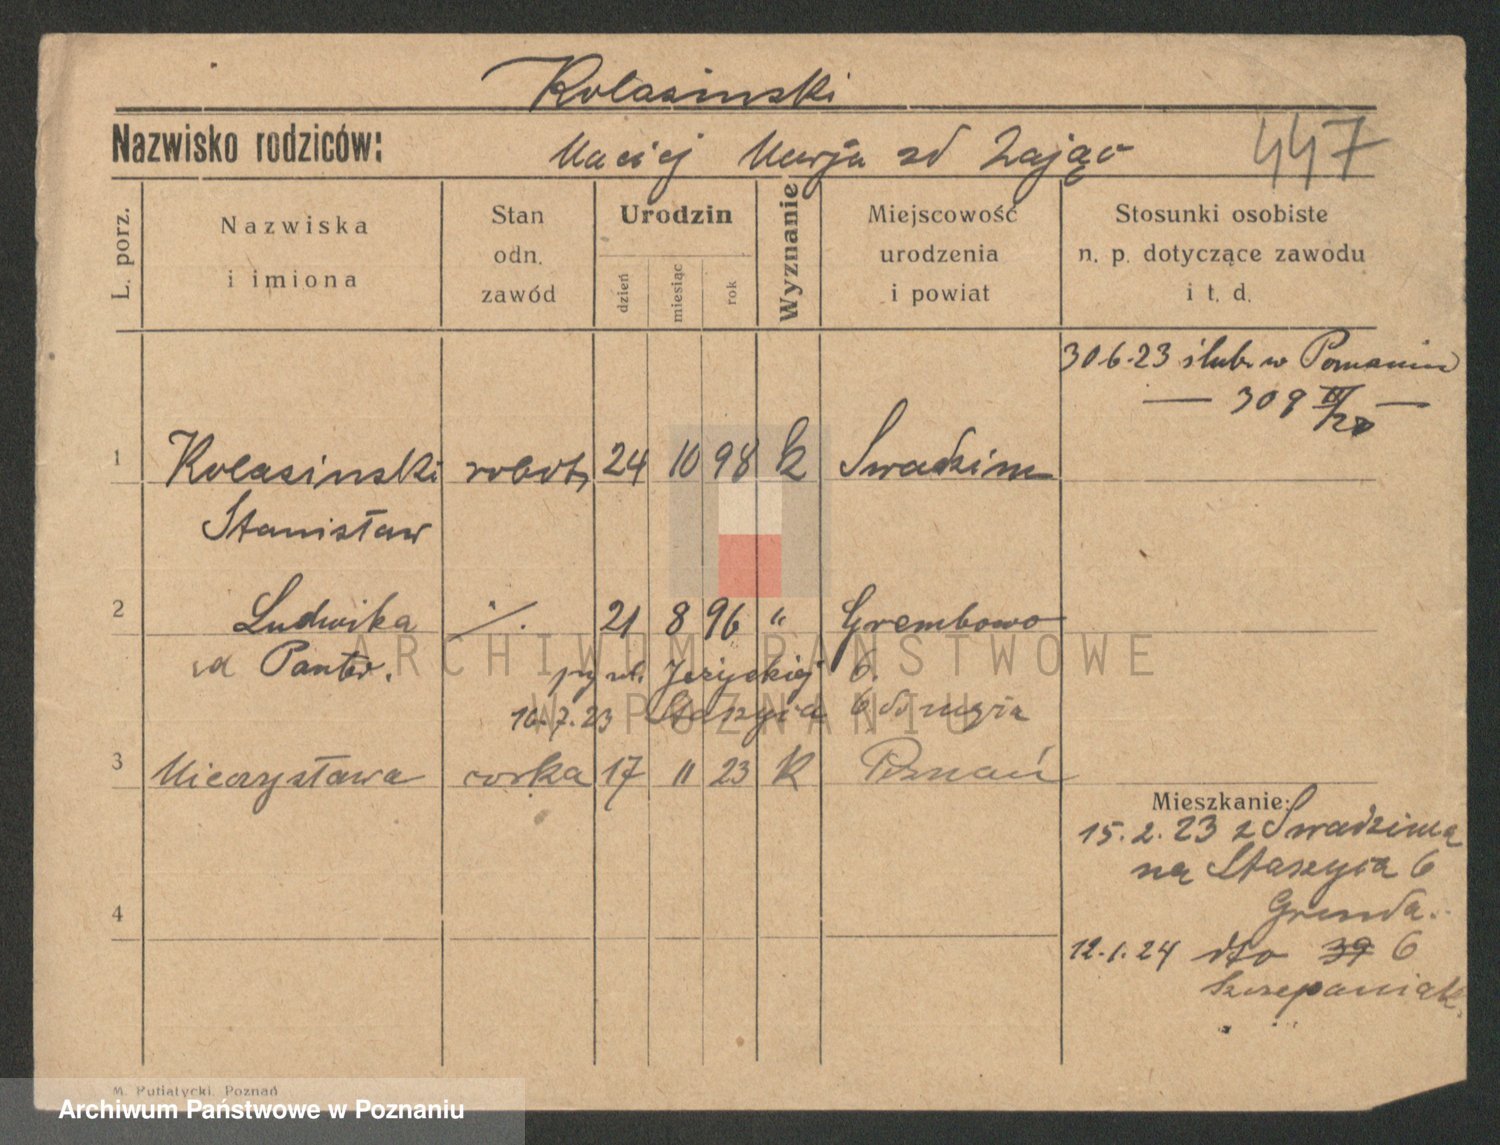 Kolasinski
Nazwisko rodziców:
Maciej Marja zd Zając
447
L. porz.
Nazwiska
i imiona
Stan
odn.
zawód
Urodzin
dzień
miesiąc
rok
Wyznanie
Miejscowość
urodzenia
i powiat
Stosunki osobiste
n. p. dotyczące zawodu
i t. d.
30 6·23 ślub w Poznaniu
— 309 —
1 Kolasinski robot, 24 10 98 k Swadzim
Stanisław
2 Ludwika ·/. 21 8 96 " Grembowo
zd .
ul. Jeżyckiej 6.
10.7.23 Staszyca 6
3 Mieczysława corka 17 11 23 K Poznań
Mieszkanie:
15.2.23 z Swadzima
na Staszyca 6
12.1.24 dto 39 6
Szczepaniak.
4
M. Putiatycki, Poznań
ARCHIWUM PAŃSTWOWE
W POZNANIU
Archiwum Państwowe w Poznaniu